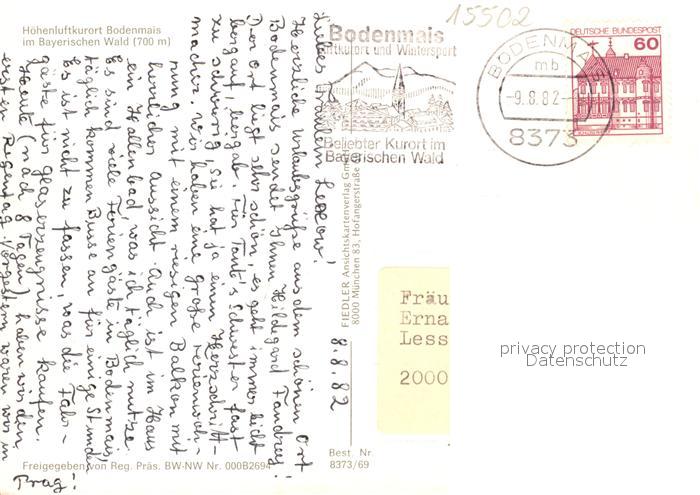 15502
Höhenluftkurort Bodenmais
im Bayerischen Wald (700 m)
Bodenmais
Luftkurort und Wintersport
Beliebter Kurort im
Bayerischen Wald
BODENMAIS
mb
-9.8.82.-
8373
DEUTSCHE BUNDESPOST
60
8.8.82
Liebes Fräulein
Herzliche Urlaubsgrüße aus dem schönen Ort
Bodenmais sendet Ihnen Hildegard
Der Ort liegt sehr schön, es geht immer leicht
bergauf, bergab. Für Tante's Schwester fast
zu schwierig, Sie hat ja einen Herzschritt-
macher. Wir haben eine große Ferienwoh-
nung mit einem riesigen Balkon mit
herrlicher Aussicht. Auch ist im Haus
ein Hallenbad, was ich täglich nutze.
Es sind viele Feriengäste in Bodenmais,
täglich kommen Busse an für einige Stunden
Es ist nicht zu fassen, was die Fahr-
gäste für Glaserzeugnisse kaufen.
Heute (nach 8 Tagen) haben wir den
ersten Regentag. Vorgestern waren wir in
Prag!
FIEDLER Ansichtskartenverlag GmbH
8000 München 83, Hofangerstraße
Fräu
Erna
Less
2000
privacy protection
Datenschutz
Freigegeben von Reg. Präs. BW-NW Nr. 000B2694
Best. Nr.
8373/69